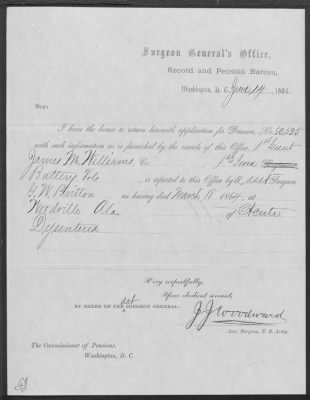 Surgeon General's Office,
Record and Pension Bureau,
Washington, D. C. June 14, 1864.
Sir:
I have the honor to return herewith application for Pension, No. 50525
with such information as is furnished by the records of this Office. 1st Lieut
James M. Williams, Co. 1st Iowa
Battery Vols, is reported to this Office by Asst Surgeon
G. W. Britton as having died March 18 1864, at
Woodville Ala of Acute
Dysenteria
Very respectfully,
Your obedient servant,
BY ORDER OF THE SURGEON GENERAL:
J. J. Woodward
Ass. Surgeon, U. S. Army.
The Commissioner of Pensions,
Washington, D. C.